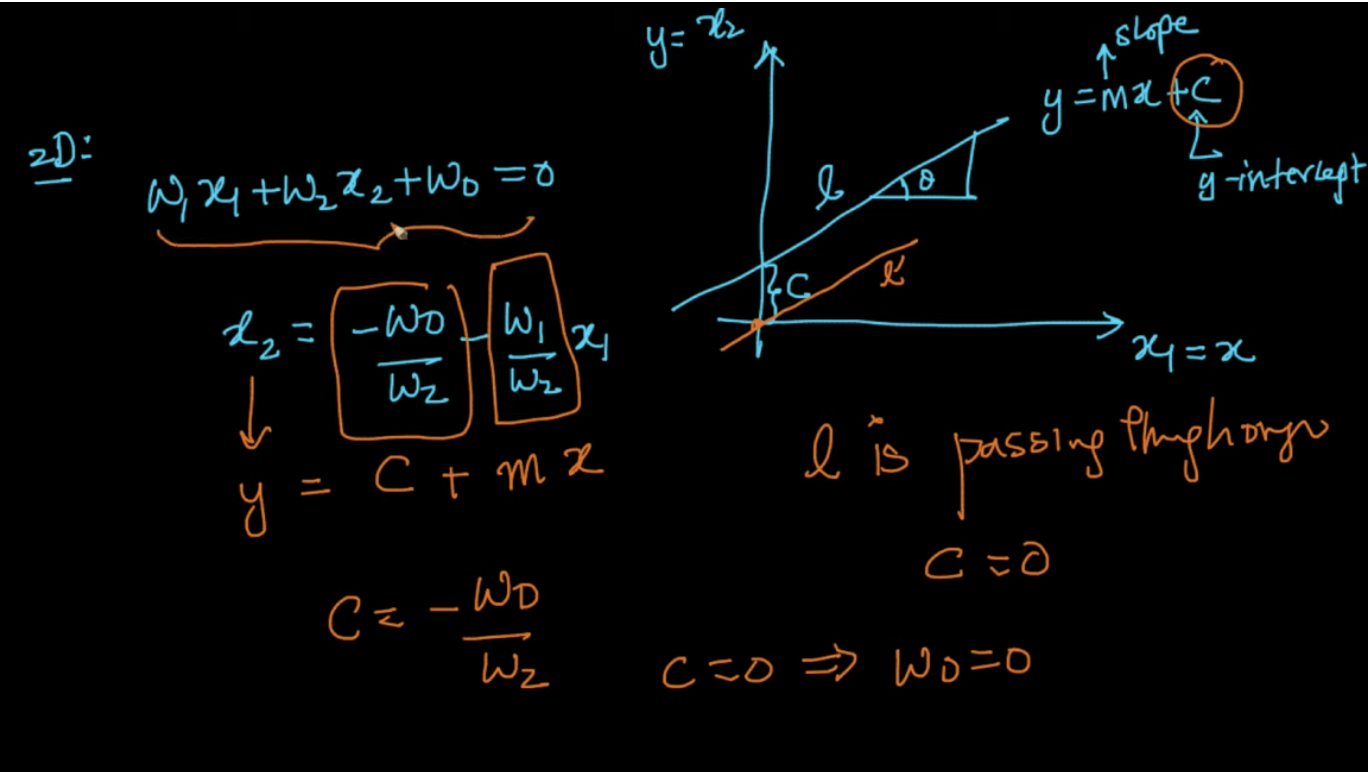 2D:
w₁x₁ + w₂x₂ + w₀ = 0
x₂ = -w₀/w₂ - w₁/w₂ x₁
y = C + mx
C = -w₀/w₂
y = x₂
slope
y = mx + C
y-intercept
l
θ
C
l'
x₁ = x
l is passing
C = 0
C = 0 ⇒ w₀ = 0